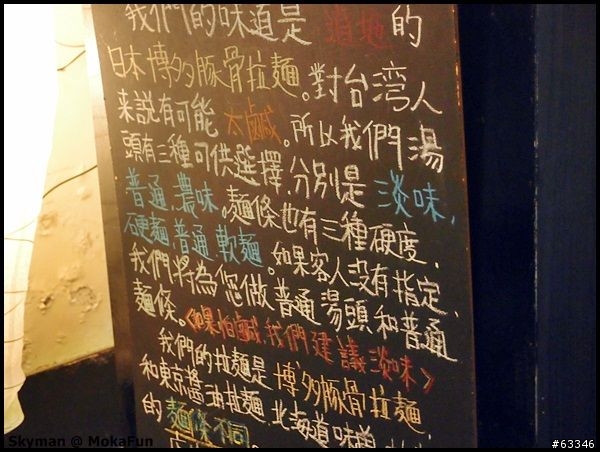 我們的味道是道地的
日本博多豚骨拉麵。對台湾人
来説有可能太鹹。所以我們湯
頭有三種可供選擇,分別是淡味,
普通,濃味。麵條也有三種硬度,
硬麵,普通,軟麵。如果客人沒有指定,
我們將為您做普通湯頭和普通
麵條。<如果怕鹹,我們建議淡味>
我們的拉麵是博多豚骨拉麵,
和東京醬油拉麵,北海道味噌
的麵條不同
Skyman @ MokaFun
#63346